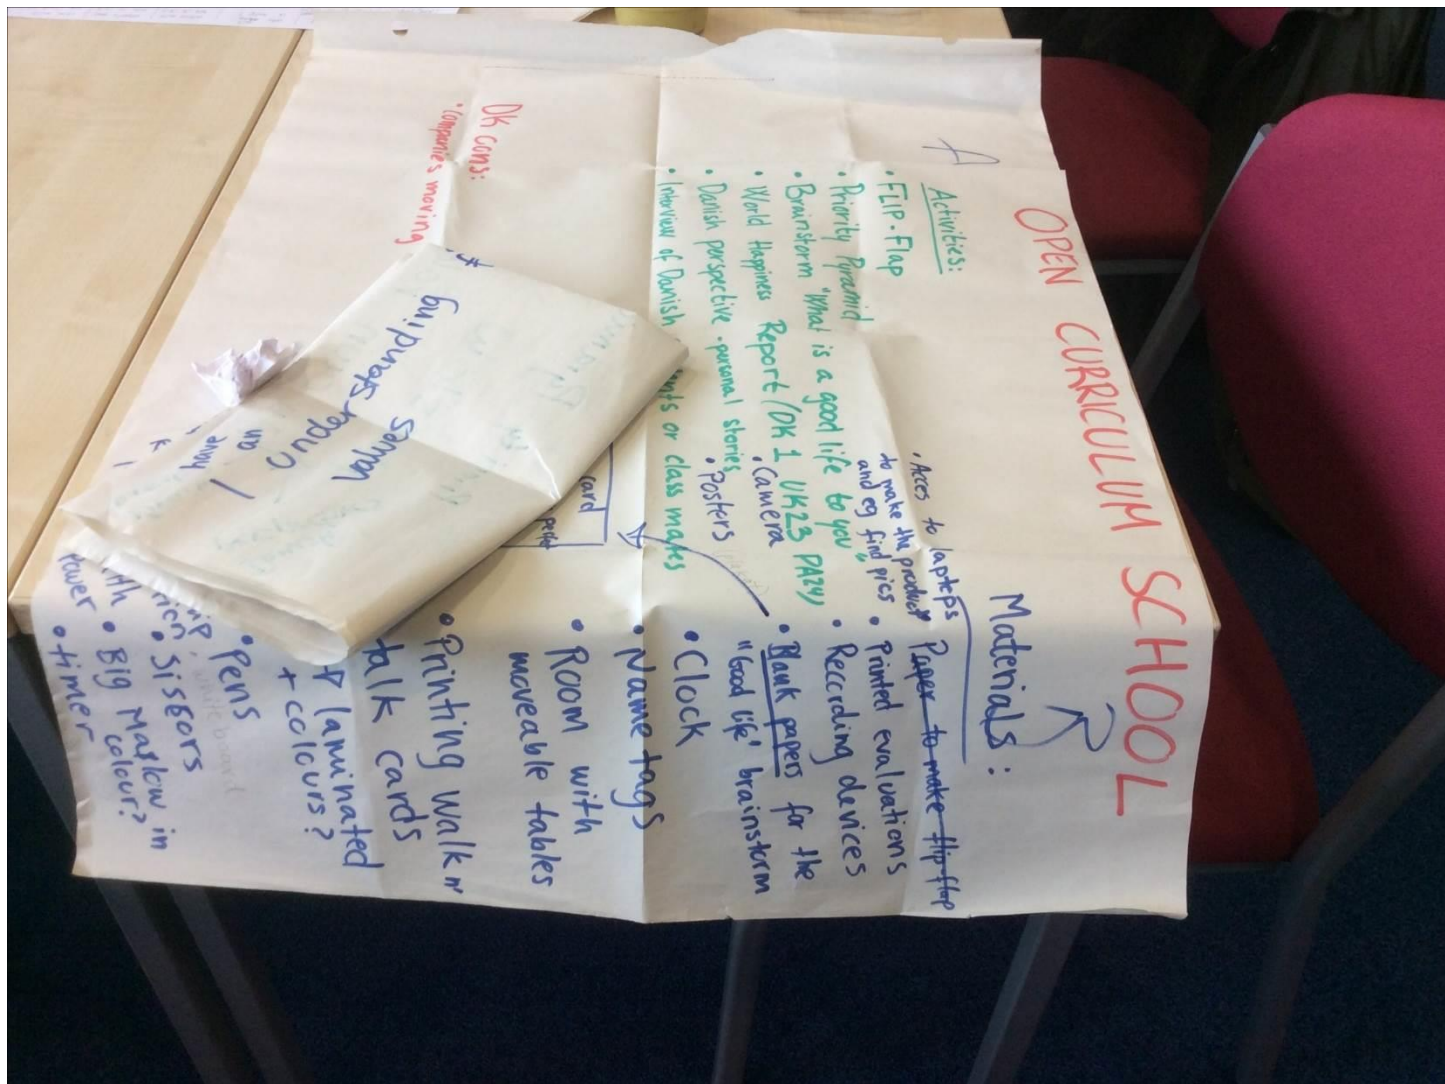 OPEN CURRICULUM SCHOOL
A
Activities:
• FLIP-Flap
• Priority Pyramid
• Brainstorm "What is a good life to you"
• World Happiness Report (DK 1 UK23 PA24)
• Danish perspective • personal stories
• Interview of Danish
nts or class mates
• Acces to laptops
to make the product
and eg find pics
• Camera
• Posters
Materials:
Paper to make flip-flap
• Printed evaluations
• Recording devices
• Blank papers for the
"Good life" brainstorm
• Clock
• Name tags
• Room with
moveable tables
• Printing walk n'
talk cards
laminated
+ colours?
• Pens
whiteboard
• Sissors
• Big Maslow in
colour?
• timer
Power
card
DK cons:
• Companies moving
understanding